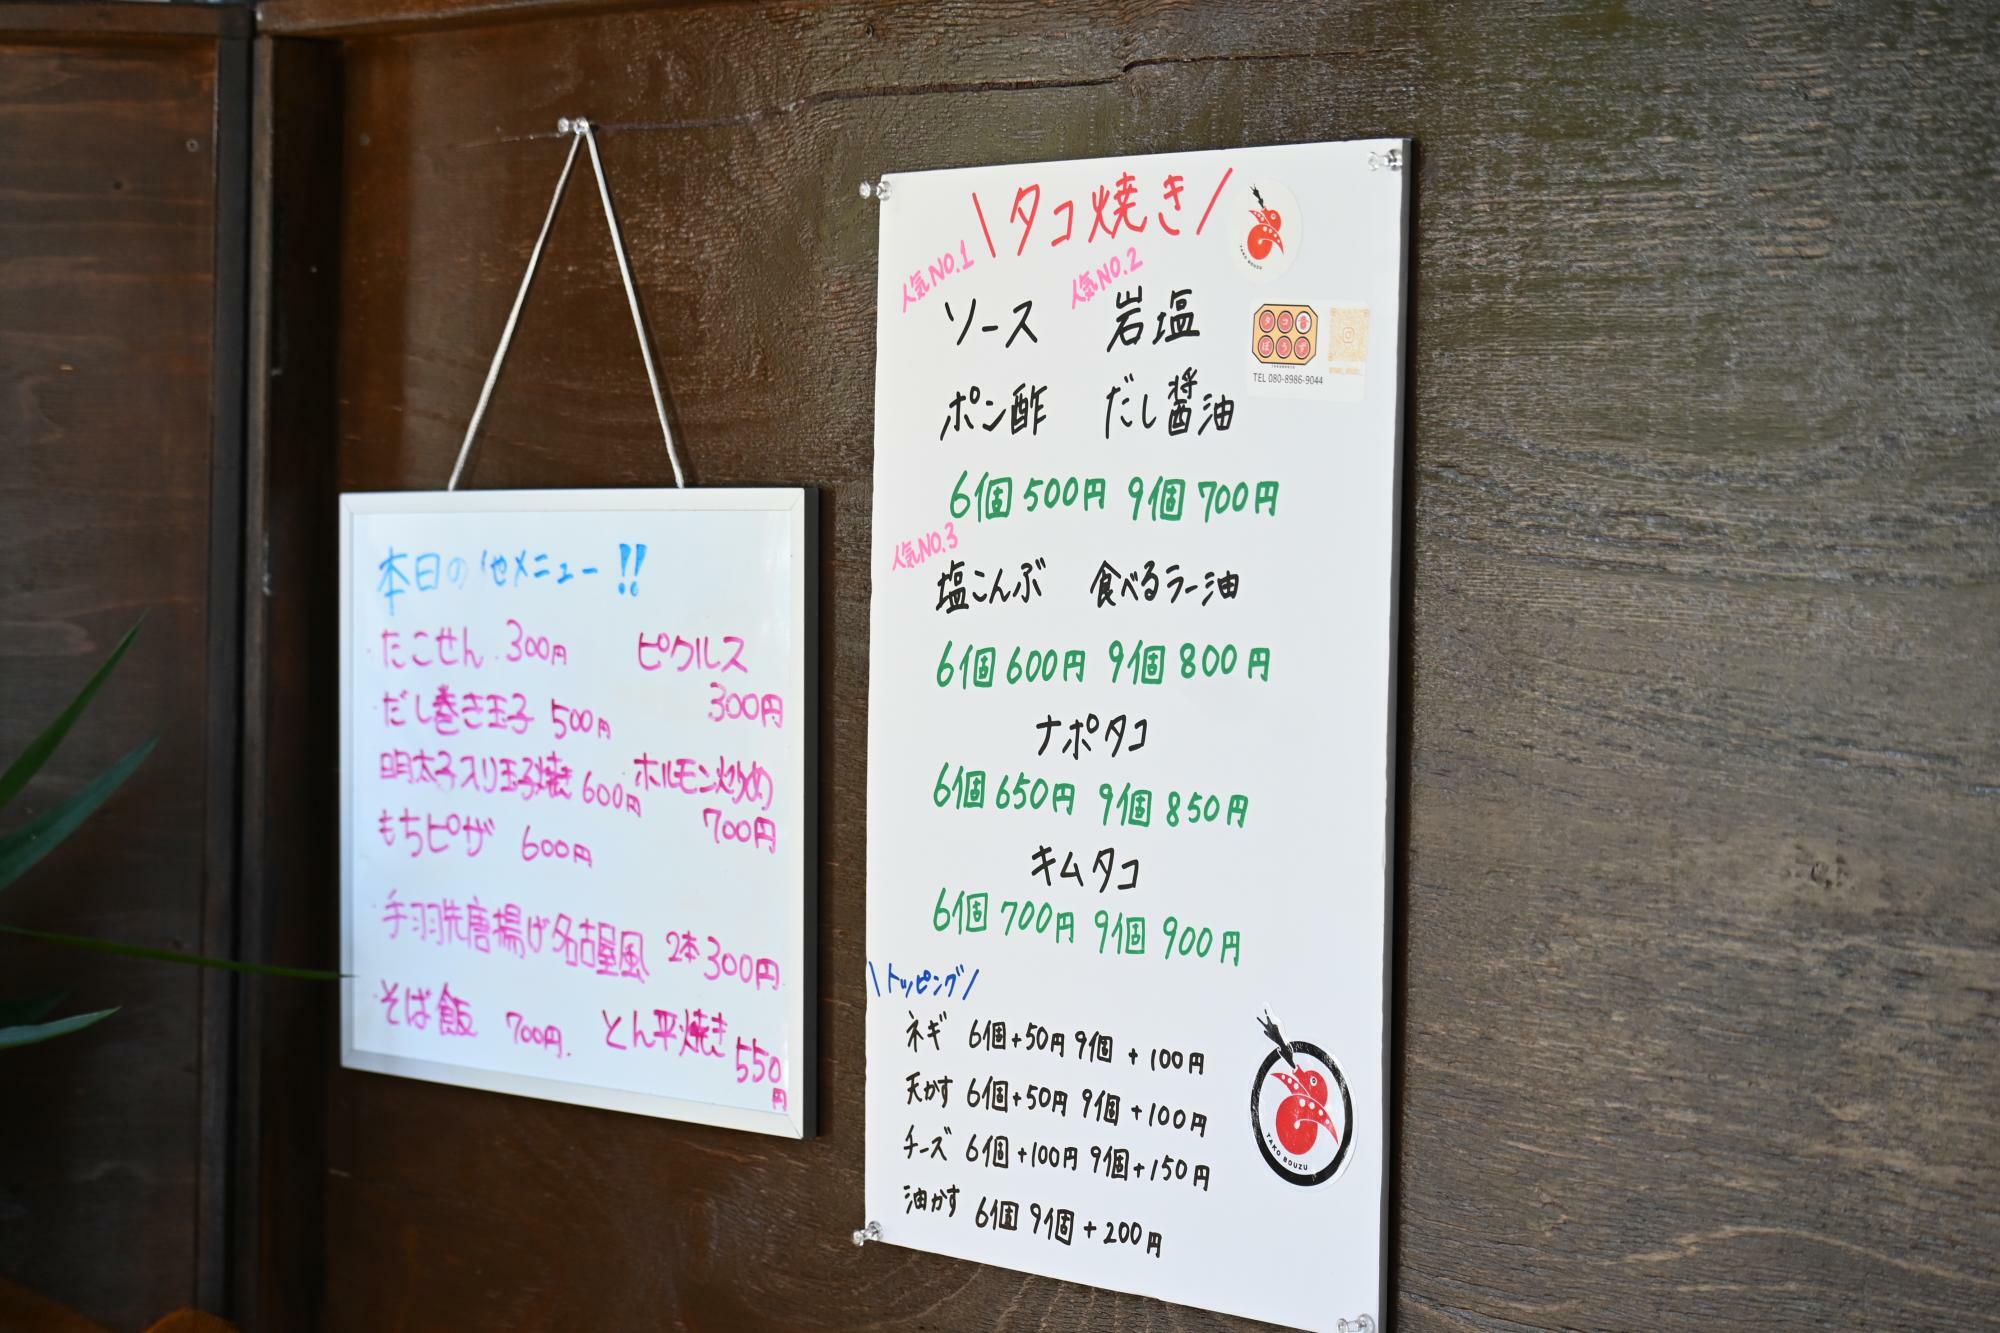 本日の他メニュー!!
たこせん 300円
ピクルス
300円
だし巻き玉子 500円
明太子入り玉子焼き 600円
ホルモン炒め
700円
もちピザ 600円
手羽先唐揚げ名古屋風 2本300円
そば飯 700円.
とん平焼き
550円
\タコ焼き/
人気NO.1 人気NO.2
ソース 岩塩
ポン酢 だし醤油
6個500円 9個700円
人気NO.3
塩こんぶ 食べるラー油
6個600円 9個800円
ナポタコ
6個650円 9個850円
キムタコ
6個700円 9個900円
\トッピング/
ネギ 6個+50円 9個+100円
天かす 6個+50円 9個+100円
チーズ 6個+100円 9個+150円
油かす 6個 9個+200円
TAKO BOUZU
タコ
ぼうず
TEL 080-8986-9044
TAKO BOUZU